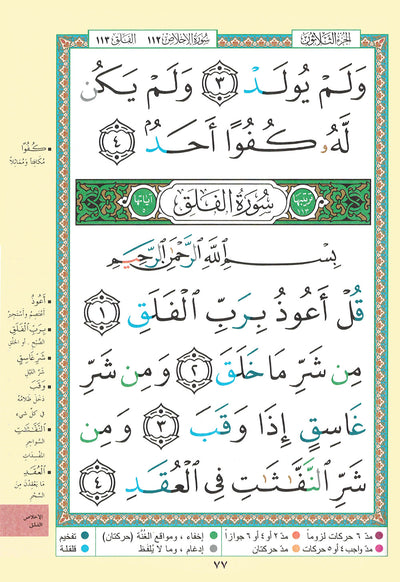 الجزء الثلاثون
سورة الإخلاص ١١٢ الفلق ١١٣
وَلَمْ يُولَدْ ٣ وَلَمْ يَكُن
لَّهُۥ كُفُوًا أَحَدٌۢ ٤
ترتيبها ١١٣
سورة الفلق
آياتها ٥
بِسْمِ اللَّهِ الرَّحْمَٰنِ الرَّحِيمِ
قُلْ أَعُوذُ بِرَبِّ الْفَلَقِ ١
مِن شَرِّ مَا خَلَقَ ٢ وَمِن شَرِّ
غَاسِقٍ إِذَا وَقَبَ ٣ وَمِن
شَرِّ النَّفَّٰثَٰتِ فِي الْعُقَدِ ٤
كُفُوًا
مكافئاً ومماثلاً
أَعُوذُ
أعتصم وأستجير
بِرَبِّ الْفَلَقِ
الصبح ، أو الخلق
شَرِّ غَاسِقٍ
شر الليل
وَقَبَ
دخل ظلامه
في كل شيء
النَّفَّٰثَٰتِ
السواحر
المفسدات
الْعُقَدِ
ما يعقدن من
السحر
الإخلاص
الفلق
مدّ ٦ حركات لزوماً
مدّ ٢ أو ٤ أو ٦ جوازاً
إخفاء ، ومواقع الغُنَّة (حركتان)
تفخيم
مدّ واجب ٤ أو ٥ حركات
مدّ حركتان
إدغام ، وما لا يُلفظ
قلقلة
٧٧